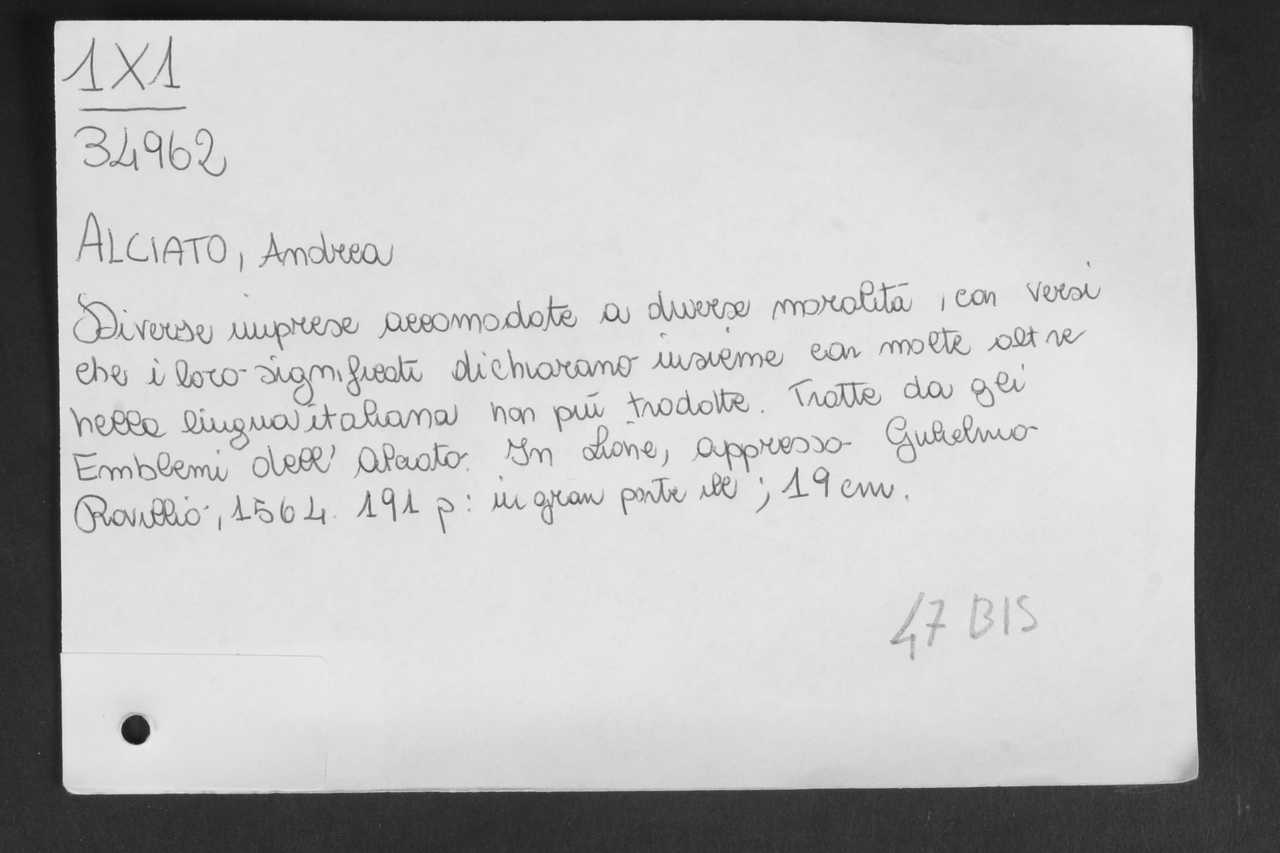 1X1
34962
ALCIATO, Andrea
Diverse imprese accomodate a diverse moralità, con versi
che i loro significati dichiarano insieme con molte altre
nella lingua italiana non più tradotte. Tratte da gli
Emblemi dell' Alciato. In Lione, appresso Gulielmo
Rovillio, 1564. 191 p: in gran parte ill ; 19 cm.
47 BIS